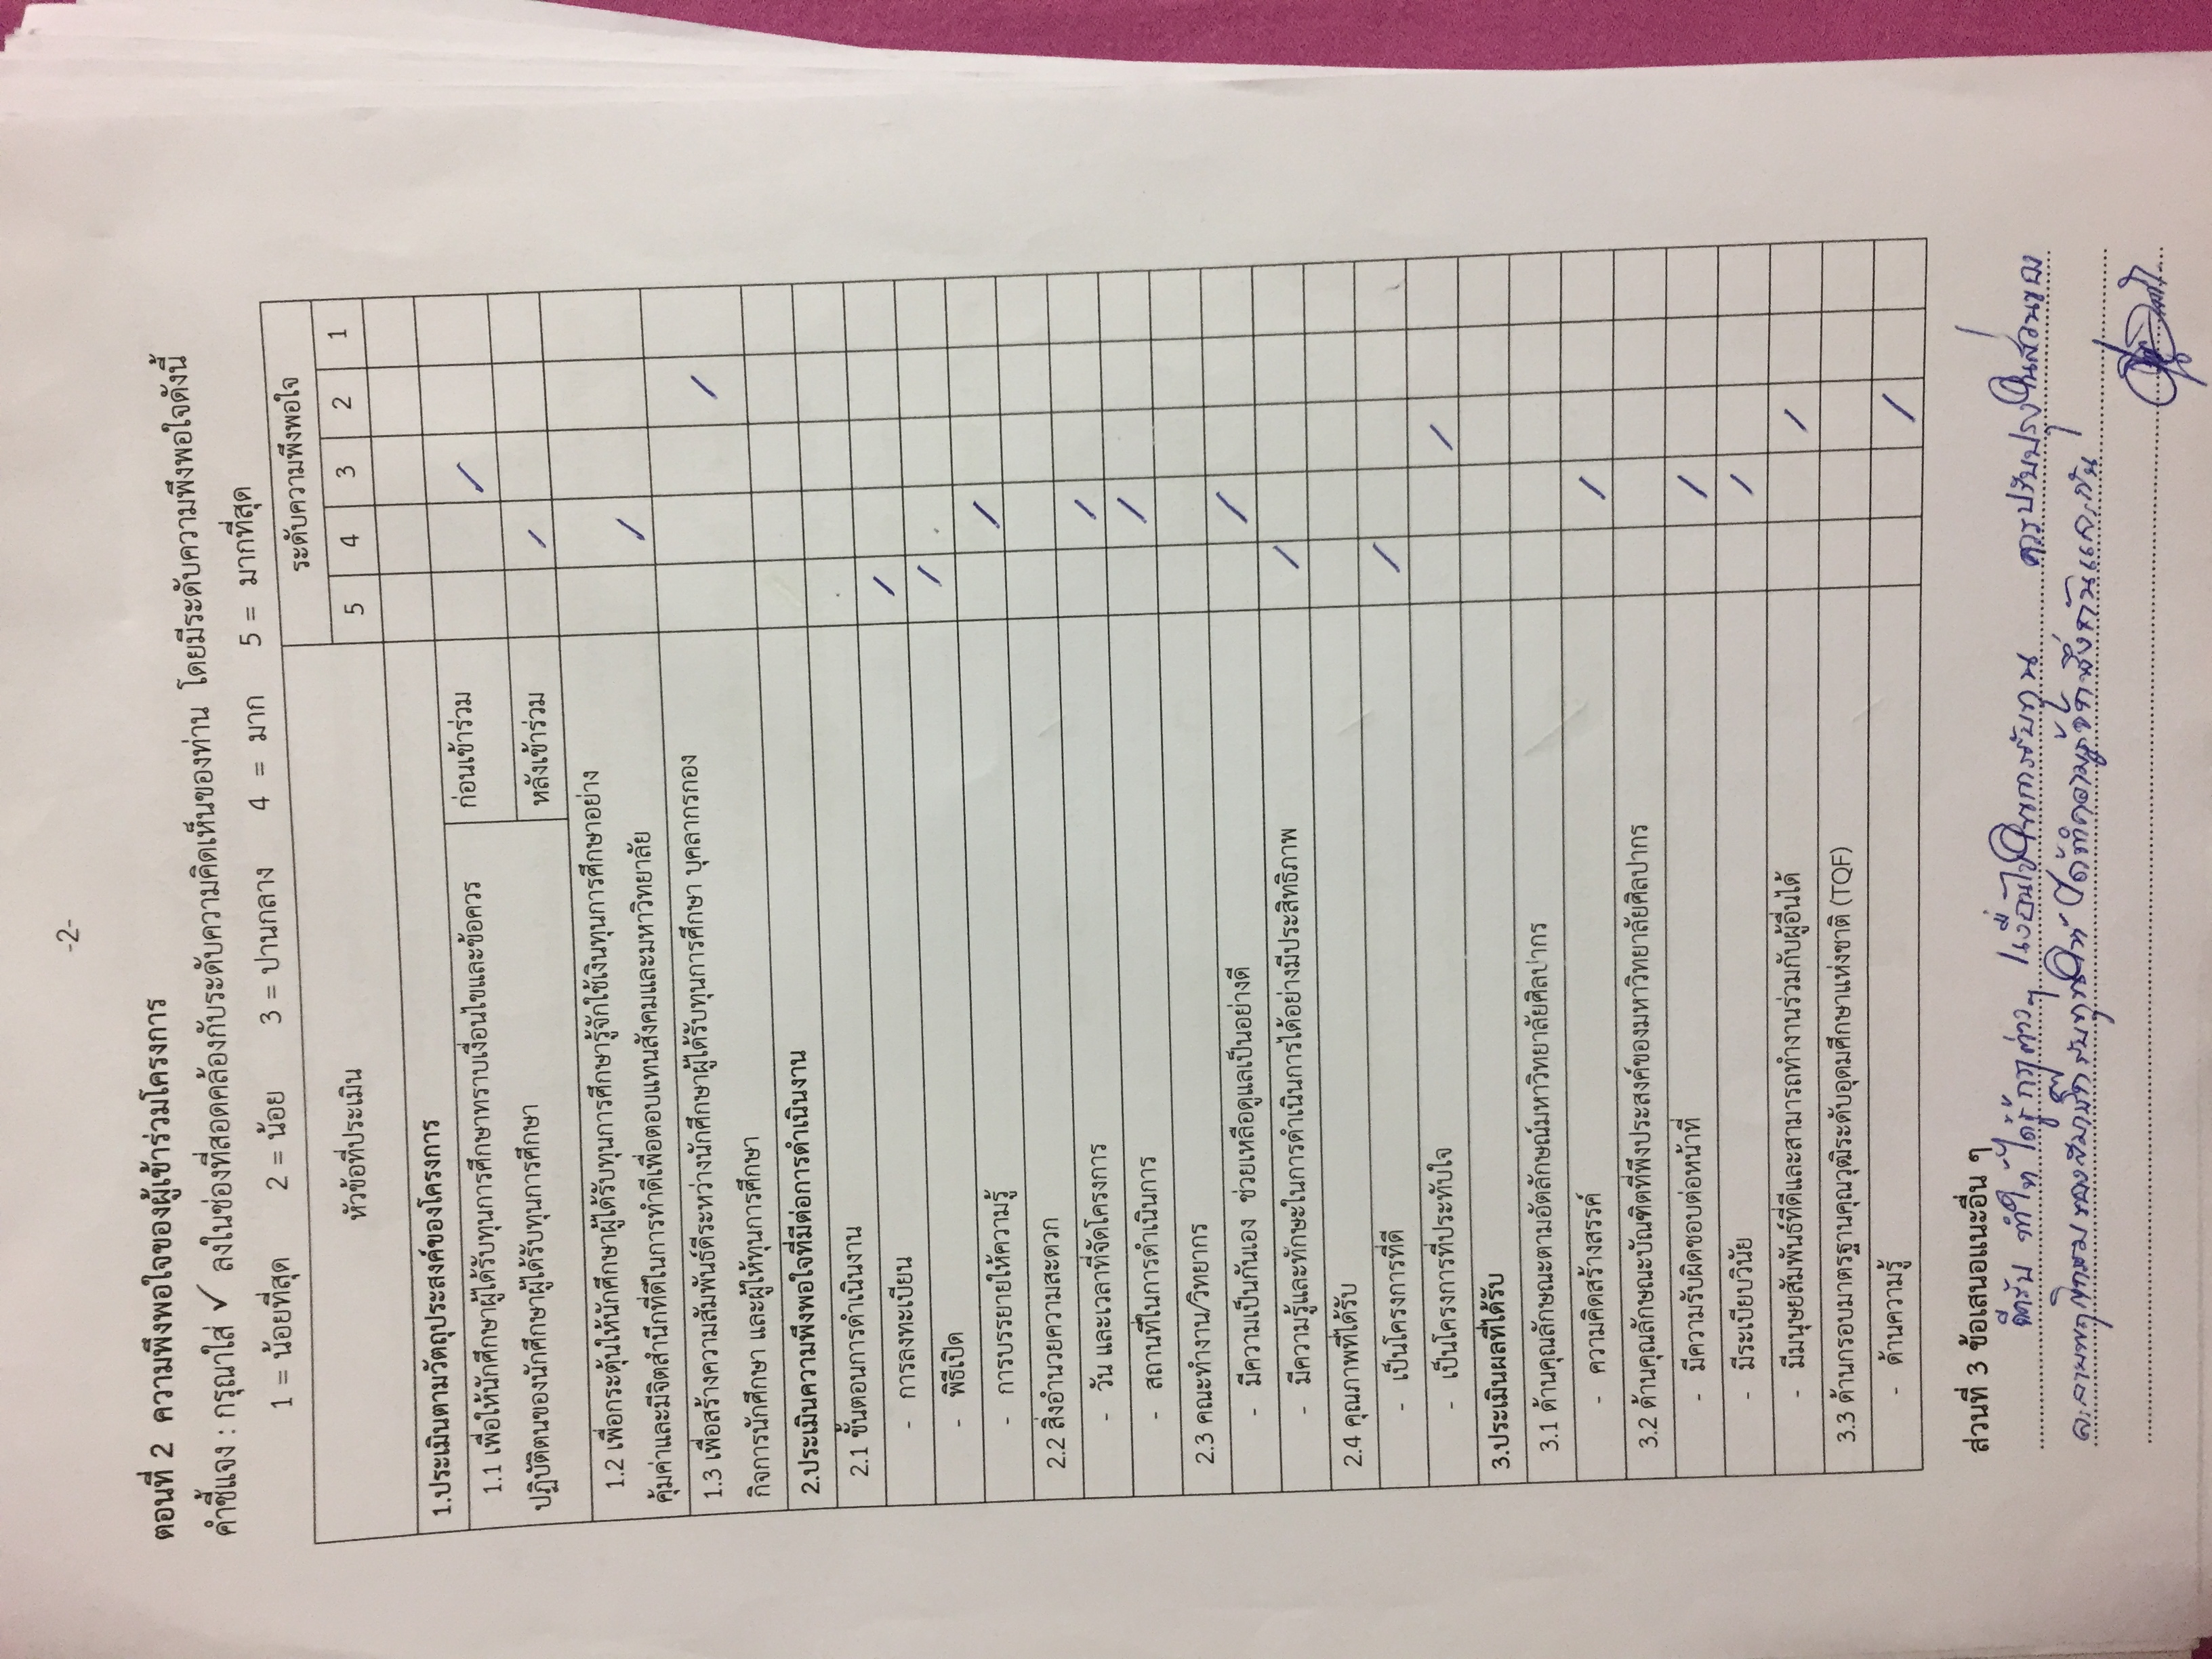 -2-
ตอนที่ 2 ความพึงพอใจของผู้เข้าร่วมโครงการ
คำชี้แจง : กรุณาใส่ ✓ ลงในช่องที่สอดคล้องกับระดับความคิดเห็นของท่าน โดยมีระดับความพึงพอใจดังนี้
1 = น้อยที่สุด 2 = น้อย 3 = ปานกลาง 4 = มาก 5 = มากที่สุด
หัวข้อที่ประเมิน ระดับความพึงพอใจ
5 4 3 2 1
1.ประเมินตามวัตถุประสงค์ของโครงการ
1.1 เพื่อให้นักศึกษาผู้ได้รับทุนการศึกษาทราบเงื่อนไขและข้อควร ก่อนเข้าร่วม /
ปฏิบัติตนของนักศึกษาผู้ได้รับทุนการศึกษา หลังเข้าร่วม /
1.2 เพื่อกระตุ้นให้นักศึกษาผู้ได้รับทุนการศึกษารู้จักใช้เงินทุนการศึกษาอย่าง
คุ้มค่าและมีจิตสำนึกที่ดีในการทำดีเพื่อตอบแทนสังคมและมหาวิทยาลัย /
1.3 เพื่อสร้างความสัมพันธ์ดีระหว่างนักศึกษาผู้ได้รับทุนการศึกษา บุคลากรกอง /
กิจการนักศึกษา และผู้ให้ทุนการศึกษา
2.ประเมินความพึงพอใจที่มีต่อการดำเนินงาน
2.1 ขั้นตอนการดำเนินงาน
- การลงทะเบียน /
- พิธีเปิด /
- การบรรยายให้ความรู้ /
2.2 สิ่งอำนวยความสะดวก
- วัน และเวลาที่จัดโครงการ /
- สถานที่ในการดำเนินการ /
2.3 คณะทำงาน/วิทยากร
- มีความเป็นกันเอง ช่วยเหลือดูแลเป็นอย่างดี /
- มีความรู้และทักษะในการดำเนินการได้อย่างมีประสิทธิภาพ /
2.4 คุณภาพที่ได้รับ
- เป็นโครงการที่ดี /
- เป็นโครงการที่ประทับใจ /
3.ประเมินผลที่ได้รับ
3.1 ด้านคุณลักษณะตามอัตลักษณ์มหาวิทยาลัยศิลปากร
- ความคิดสร้างสรรค์ /
3.2 ด้านคุณลักษณะบัณฑิตที่พึงประสงค์ของมหาวิทยาลัยศิลปากร
- มีความรับผิดชอบต่อหน้าที่ /
- มีระเบียบวินัย /
- มีมนุษยสัมพันธ์ที่ดีและสามารถทำงานร่วมกับผู้อื่นได้ /
3.3 ด้านกรอบมาตรฐานคุณวุฒิระดับอุดมศึกษาแห่งชาติ (TQF)
- ด้านความรู้ /
ส่วนที่ 3 ข้อเสนอแนะอื่น ๆ
ดีครับ ทำให้ได้รู้กฎต่างๆ เงื่อนไขในการรับทุน ควรปรับปรุงในส่วนของ
ละลายพฤติกรรมของสมาชิกรับทุนให้ได้ทำความรู้จักซึ่งกันและกัน